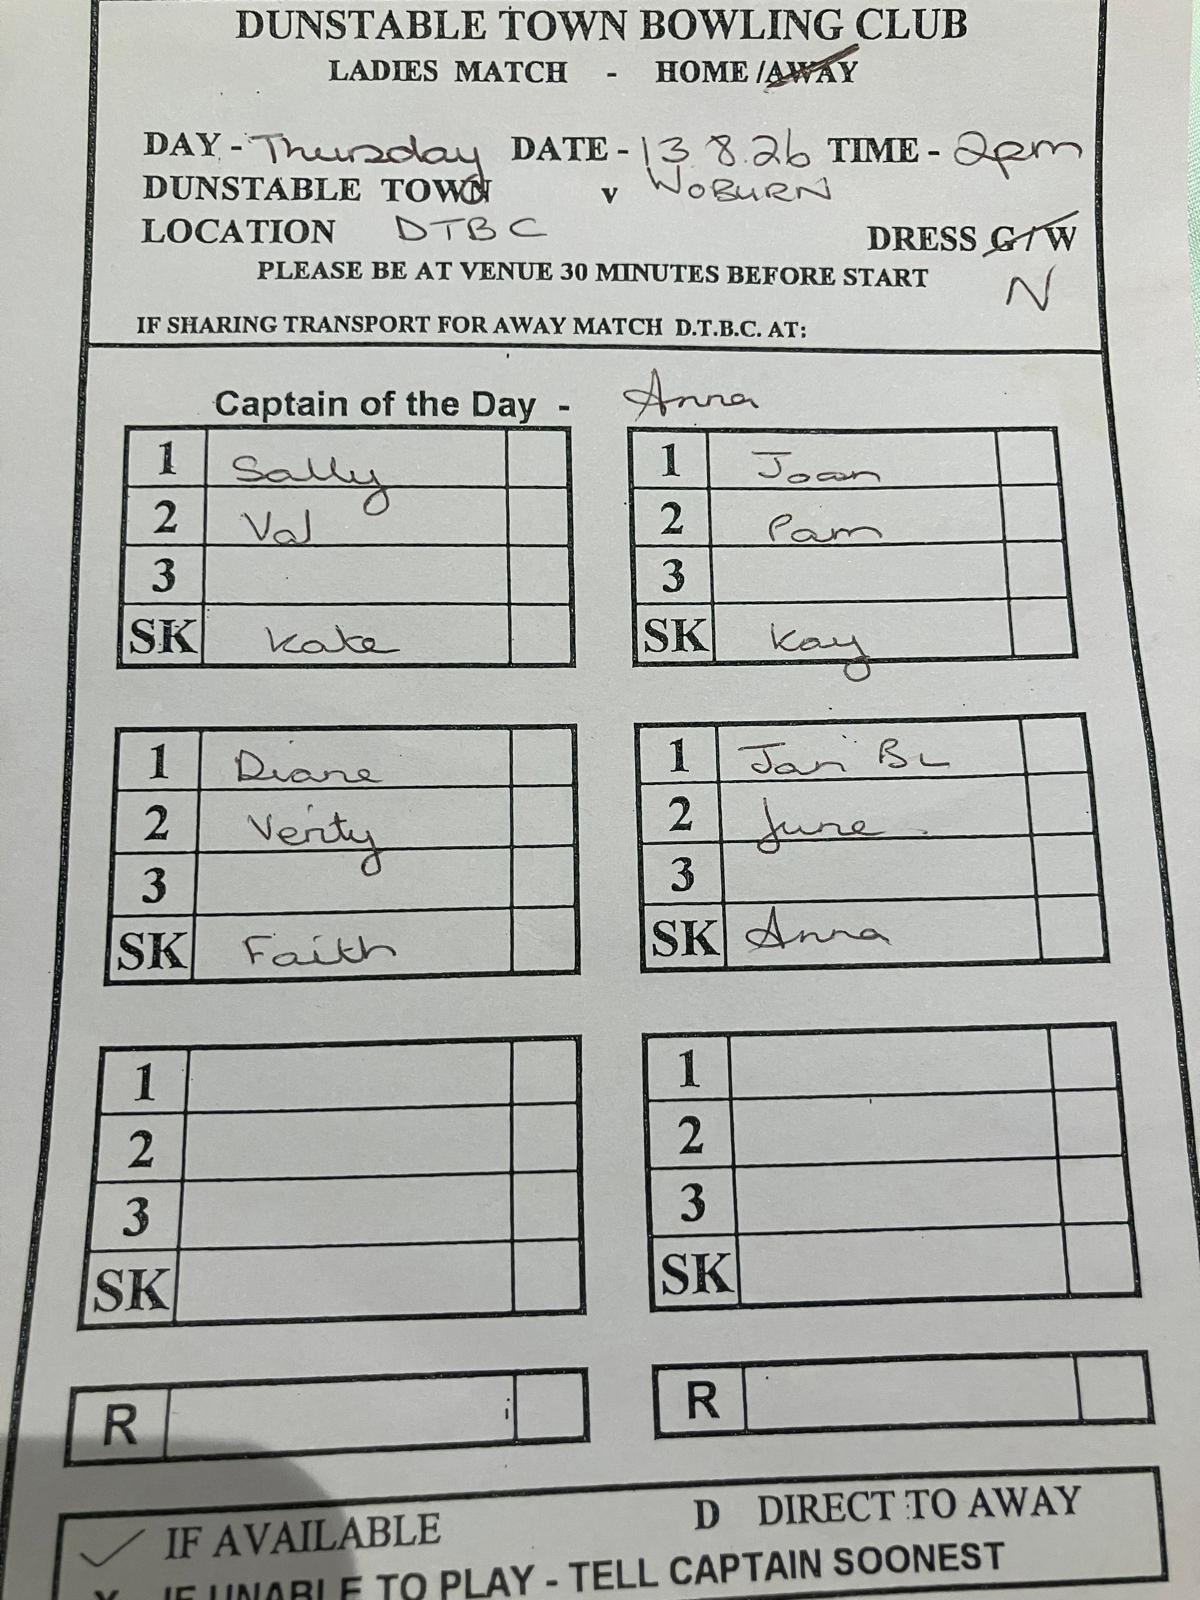 DUNSTABLE TOWN BOWLING CLUB
LADIES MATCH - HOME/AWAY
DAY - Thursday DATE - 13.8.26 TIME - 2pm
DUNSTABLE TOWN v WOBURN
LOCATION DTBC DRESS G/W
PLEASE BE AT VENUE 30 MINUTES BEFORE START
N
IF SHARING TRANSPORT FOR AWAY MATCH D.T.B.C. AT:
Captain of the Day - Anna
1 Sally
2 Val
3
SK Kate
1 Joan
2 Pam
3
SK Kay
1 Diane
2 Verity
3
SK Faith
1 Jan BL
2 June
3
SK Anna
1
2
3
SK
1
2
3
SK
R
R
✓ IF AVAILABLE D DIRECT TO AWAY
X IF UNABLE TO PLAY - TELL CAPTAIN SOONEST